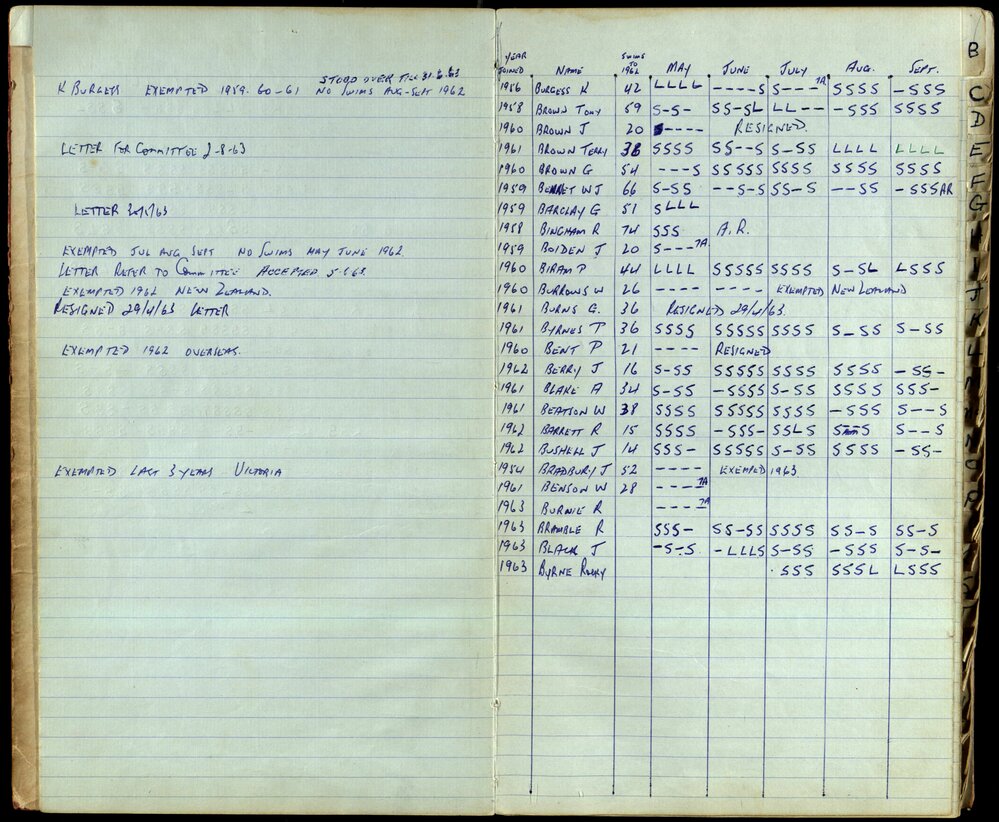 STOOD OVER TILL 31.6.63
K BURGESS EXEMPTED 1959. 60-61 NO SWIMS AUG-SEPT 1962
LETTER FOR COMMITTEE 2-8-63
LETTER
EXEMPTED JUL AUG SEPT NO SWIMS MAY JUNE 1962.
LETTER REFER TO COMMITTEE ACCEPTED
EXEMPTED 1962 NEW ZEALAND.
RESIGNED 29/4/63 LETTER
EXEMPTED 1962 OVERSEAS.
EXEMPTED LAST 3 YEARS VICTORIA
YEAR JOINED NAME SWIMS TO 1962 MAY JUNE JULY AUG. SEPT.
1956 BURGESS K 42 LLLL ----S S--- 7A SSSS -SSS
1958 BROWN TONY 59 S-S- SS-SL LL-- -SSS SSSS
1960 BROWN J 20 ---- RESIGNED.
1961 BROWN TERRY 38 SSSS SS--S S-SS LLLL LLLL
1960 BROWN G 54 ---S SSSSS SSSS SSSS SSSS
1959 BENNET WJ 66 S-SS --S-S SS-S --SS -SSSAR
1959 BARCLAY G 51 SLLL
1958 BINGHAM R 74 SSS A.R.
1959 BOIDEN J 20 S--- 7A
1960 BIRAM P 44 LLLL SSSSS SSSS S-SL LSSS
1960 BURROWS W 26 ---- ---- EXEMPTED NEW ZEALAND
1961 BURNS G. 36 RESIGNED 29/4/63.
1961 BYRNES P 36 SSSS SSSSS SSSS S-SS S-SS
1960 BENT P 21 ---- RESIGNED
1962 BERRY J 16 S-SS SSSSS SSSS SSSS -SS-
1961 BLAKE A 34 S-SS -SSSS S-SS SSSS SSS-
1961 BEATSON W 38 SSSS SSSSS SSSS -SSS S--S
1962 BARRETT R 15 SSSS -SSS- SSLS S--S S--S
1962 BUSHELL J 14 SSS- SSSSS S-SS SSSS -SS-
1954 BRADBURY J 52 ---- EXEMPED 1963
1961 BENSON W 28 ---- 7A
1963 BURNIE R ---- 7A
1963 BRAMBLE R SSS- SS-SS SSSS SS-S SS-S
1963 BLACK J -S-S -LLLS S-SS -SSS S-S-
1963 BYRNE ROCKY SSS SSSL LSSS
B
C
D
E
F
G
H
I
J
K
L
M
N
O
R